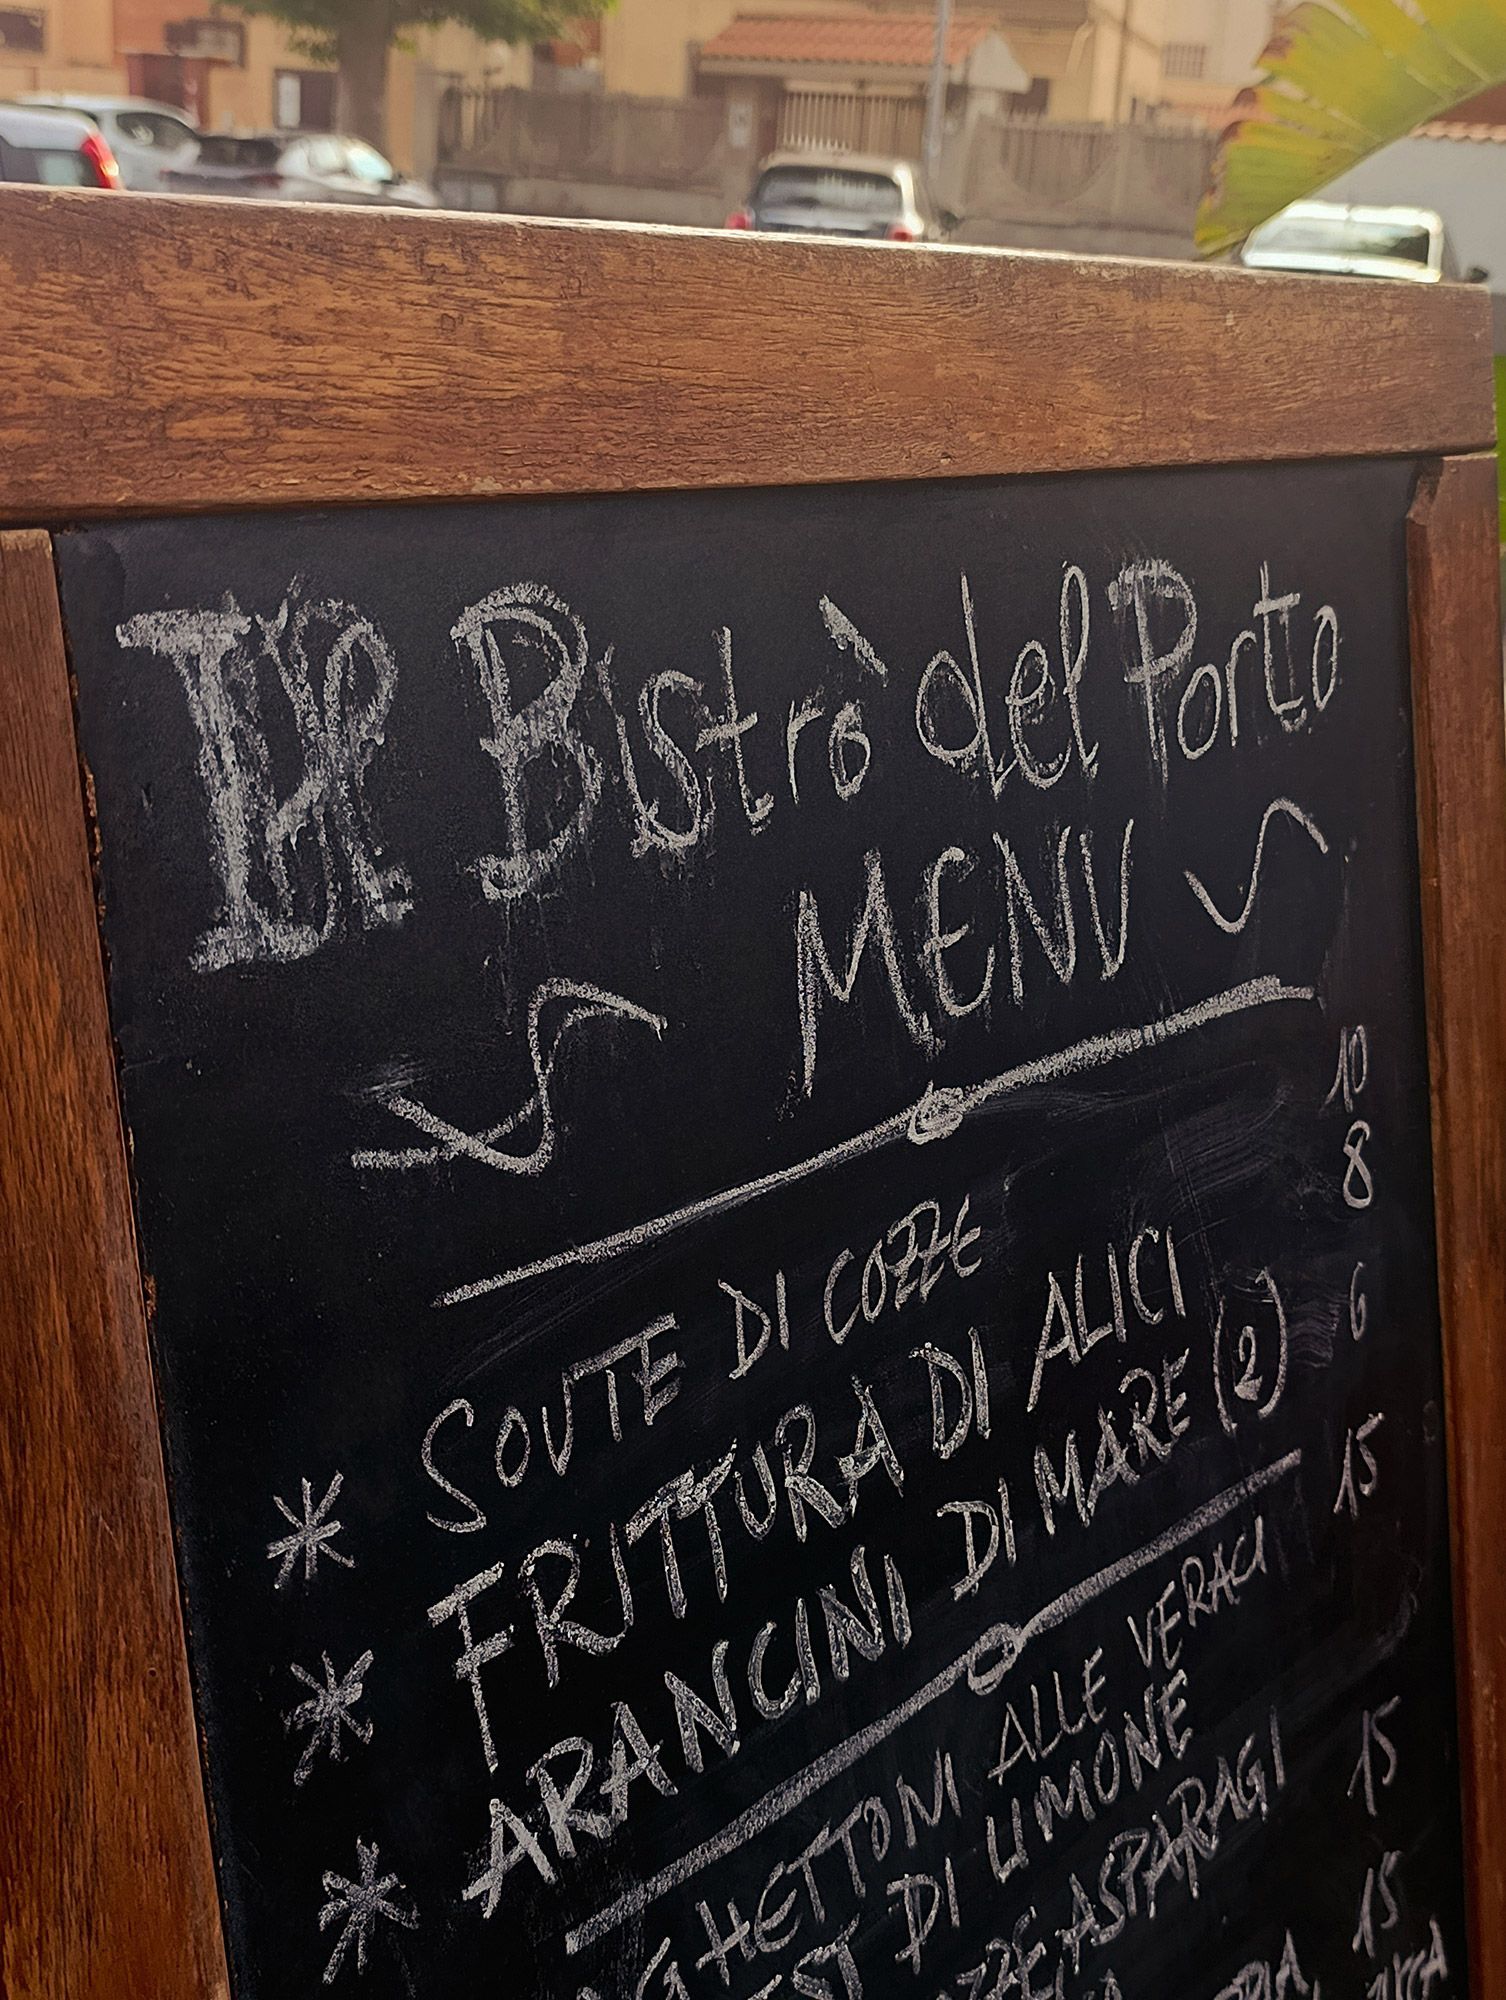 Il Bistrò del Porto
MENU
SOUTE DI COZZE 10
FRITTURA DI ALICI 8
ARANCINI DI MARE (2) 6
ALLE VERACI 15
DI LIMONE
ASPARAGI 15
15